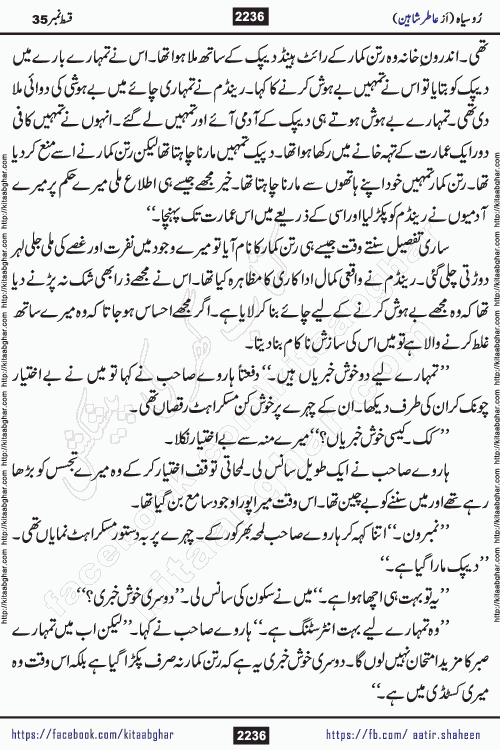 رُوسیاہ (از عاطر شاہین)
2236
قسط نمبر 35
تھی۔ اندرون خانہ وہ رتن کمار کے رائٹ ہینڈ دیپک کے ساتھ ملا ہوا تھا۔ اس نے تمہارے بارے میں
دیپک کو بتایا تو اس نے تمہیں بے ہوش کرنے کا کہا۔ رینڈم نے تمہاری چائے میں بے ہوشی کی دوائی ملا
دی تھی۔ تمہارے بے ہوش ہوتے ہی دیپک کے آدمی آئے اور تمہیں لے گئے۔ انہوں نے تمہیں کافی
دور ایک عمارت کے تہہ خانے میں رکھا ہوا تھا۔ دیپک تمہیں مارنا چاہتا تھا لیکن رتن کمار نے اسے منع کر دیا
تھا۔ رتن کمار تمہیں خود اپنے ہاتھوں سے مارنا چاہتا تھا۔ خیر مجھے جیسے ہی اطلاع ملی میرے حکم پر میرے
آدمیوں نے رینڈم کو پکڑ لیا اور اسی کے ذریعے میں اس عمارت تک پہنچا۔‘‘
ساری تفصیل سنتے وقت جیسے ہی رتن کمار کا نام آیا تو میرے وجود میں نفرت اور غصے کی ملی جلی لہر
دوڑتی چلی گئی۔ رینڈم نے واقعی کمال اداکاری کا مظاہرہ کیا تھا۔ اس نے مجھے ذرا بھی شک نہ پڑنے دیا
تھا کہ وہ مجھے بے ہوش کرنے کے لیے چائے بنا کر لایا ہے۔ اگر مجھے احساس ہو جاتا کہ وہ میرے ساتھ
غلط کرنے والا ہے تو میں اس کی سازش ناکام بنا دیتا۔
’’تمہارے لیے دو خوش خبریاں ہیں۔‘‘ دفعتاً ہاروے صاحب نے کہا تو میں نے بے اختیار
چونک کر ان کی طرف دیکھا۔ ان کے چہرے پر خوش کن مسکراہٹ رقصاں تھی۔
’’کک کیسی خوش خبریاں؟‘‘ میرے منہ سے بے اختیار نکلا۔
ہاروے صاحب نے ایک طویل سانس لی۔ لمحاتی توقف اختیار کر کے وہ میرے تجسس کو بڑھا
رہے تھے اور میں سننے کو بے چین تھا۔ اس وقت میرا پورا وجود سامع بن گیا تھا۔
’’نمبرون۔‘‘ اتنا کہہ کر ہاروے صاحب لمحہ بھر کو رکے۔ چہرے پر بہ دستور مسکراہٹ نمایاں تھی۔
’’دیپک مارا گیا ہے۔‘‘
’’یہ تو بہت ہی اچھا ہوا ہے۔‘‘ میں نے سکون کی سانس لی۔ ’’دوسری خوش خبری؟‘‘
’’وہ تمہارے لیے بہت انٹرسٹنگ ہے۔‘‘ ہاروے صاحب نے کہا۔ ’’لیکن اب میں تمہارے
صبر کا مزید امتحان نہیں لوں گا۔ دوسری خوش خبری یہ ہے کہ رتن کمار نہ صرف پکڑا گیا ہے بلکہ اس وقت وہ
میری کسٹڈی میں ہے۔‘‘
https://facebook.com/kitaabghar
2236
https://fb.com/ aatir.shaheen
http://kitaabghar.com http://kitaabghar.com http://kitaabghar.com http://kitaabghar.com
http://kitaabghar.com http://kitaabghar.com http://kitaabghar.com http://kitaabghar.com